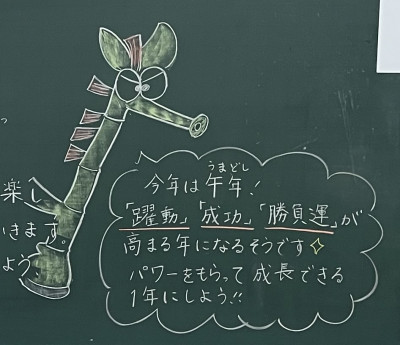 楽し
いきます。
よう、
今年は午年！
うまどし
「躍動」「成功」「勝負運」が
高まる年になるそうです✧
パワーをもらって成長できる
1年にしよう!!